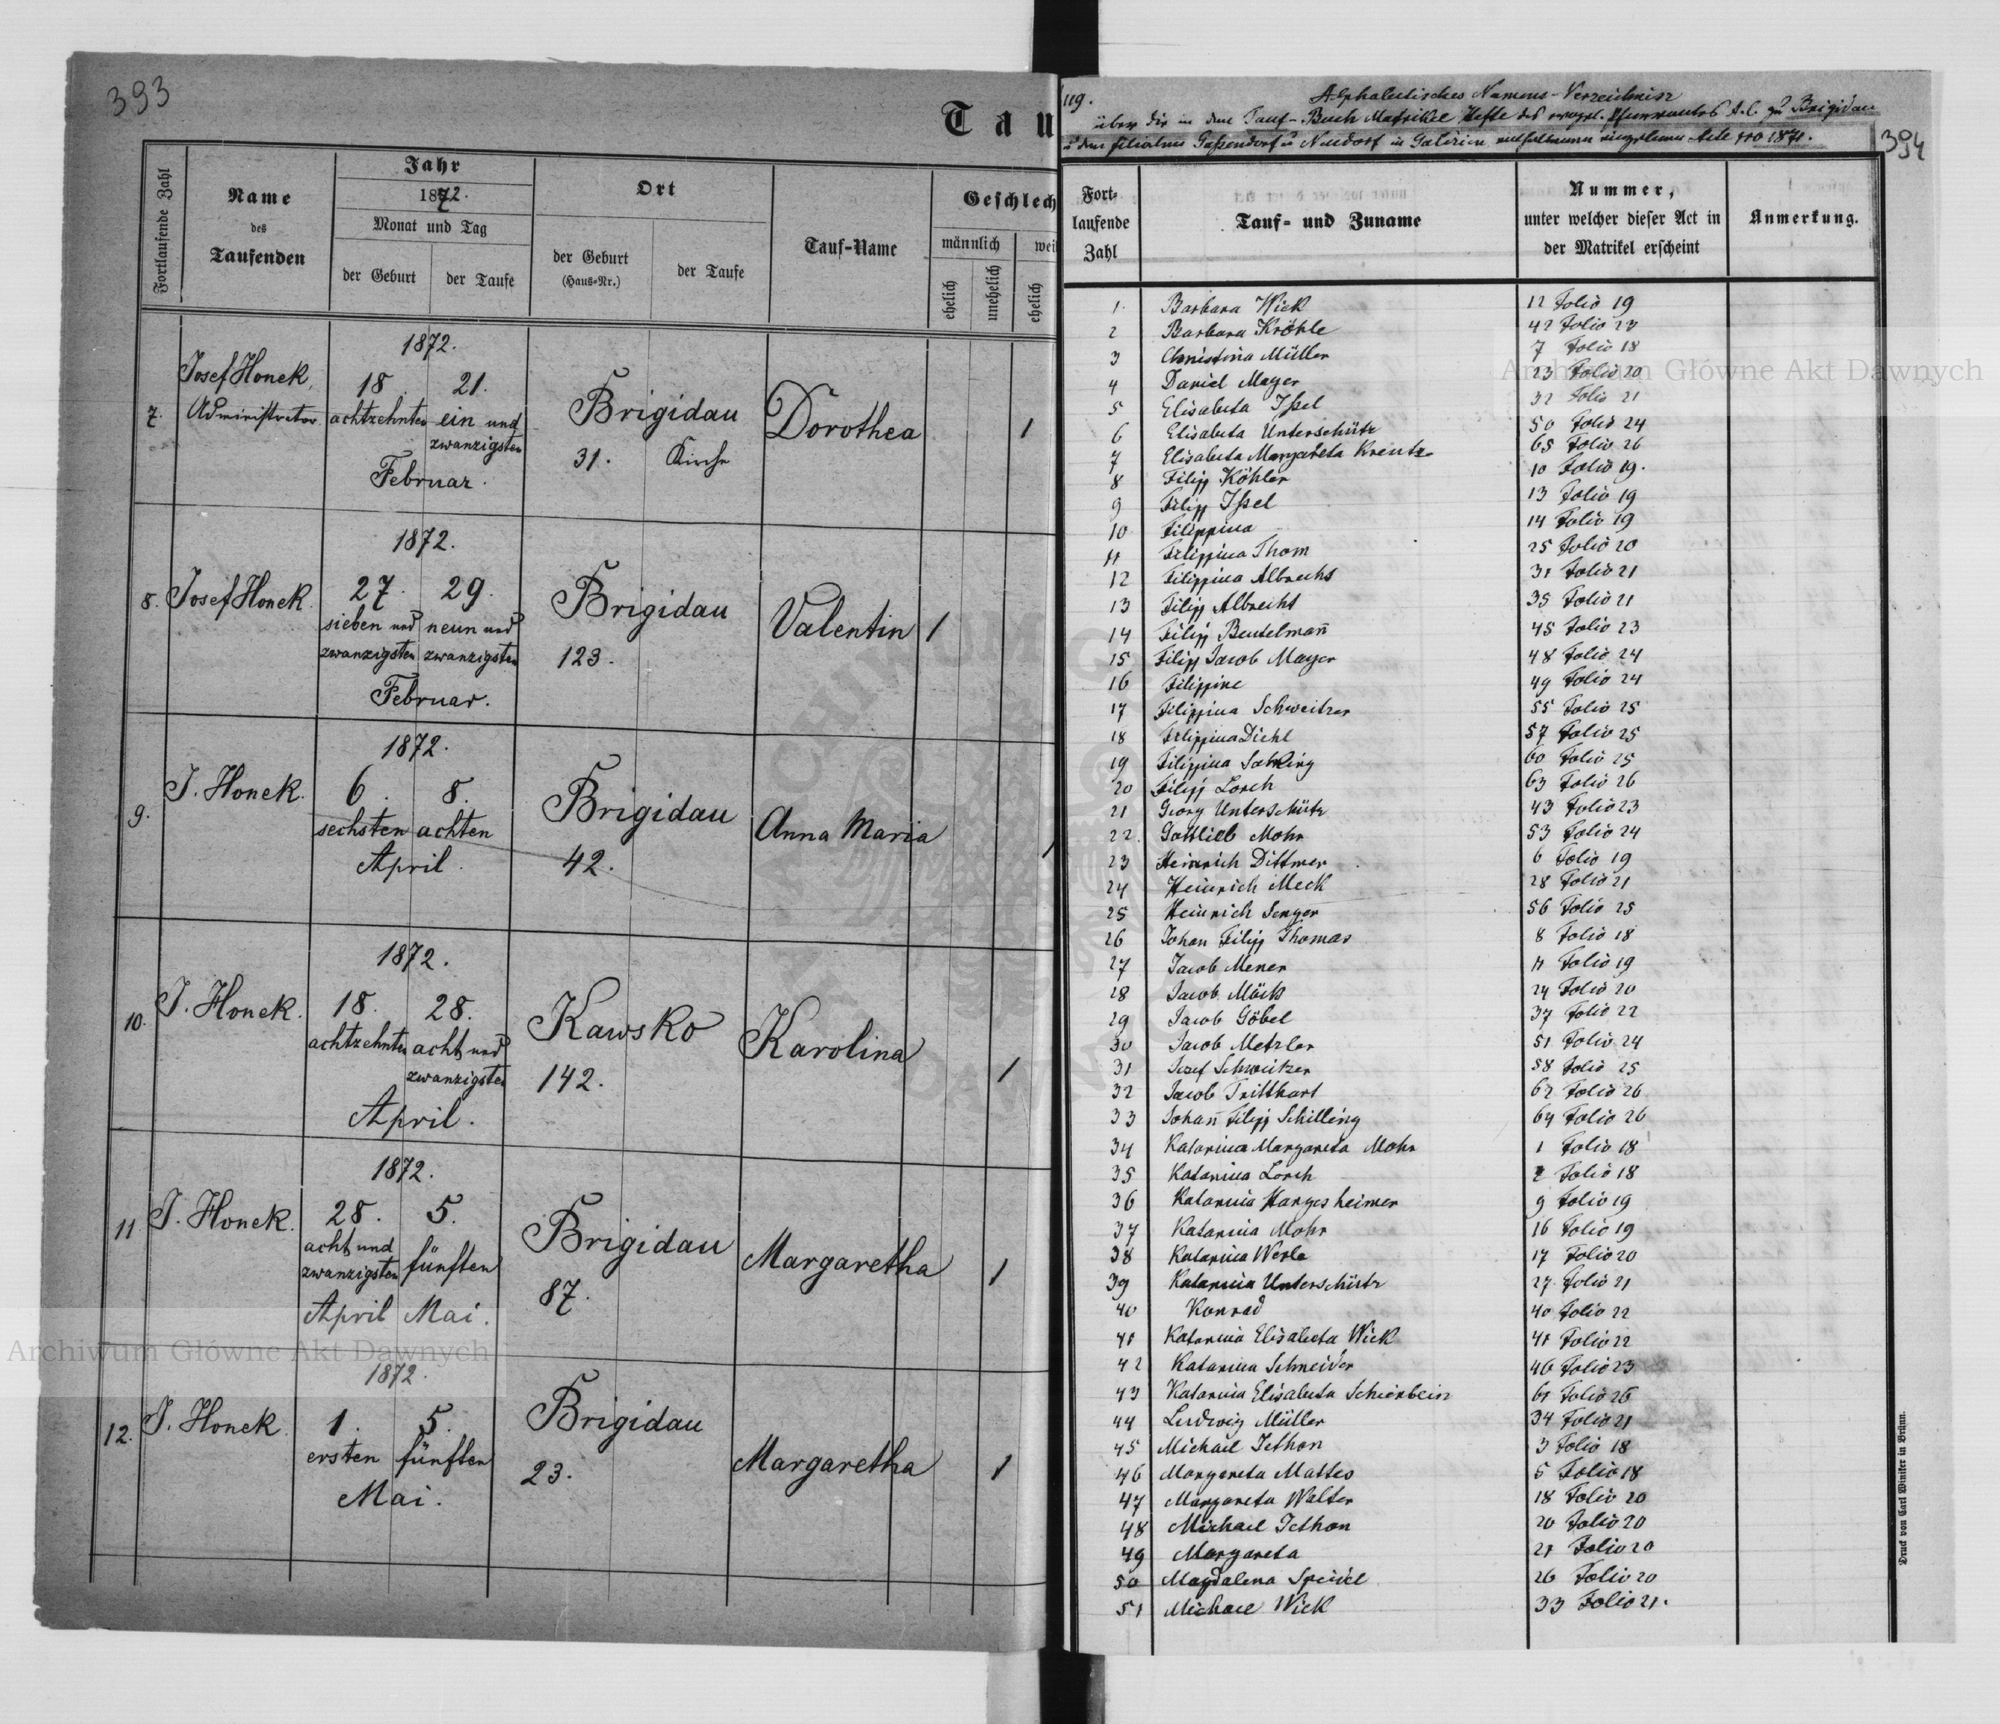 393
Tau
Fortlaufende Zahl
Name
des
Taufenden
Jahr
1872.
Monat und Tag
der Geburt
der Taufe
Ort
der Geburt
(Haus-Nr.)
der Taufe
Tauf-Name
Geschlech
männlich
wei
ehelich
unehelich
ehelich
7.
Josef Honek,
Administrator
1872.
18. 21.
achtzehnten ein und
zwanzigsten
Februar.
Brigidau
31. Kirche
Dorothea
1
8.
Josef Honek.
1872.
27. 29.
sieben und neun und
zwanzigsten zwanzigsten
Februar.
Brigidau
123.
Valentin
1
9.
J. Honek.
1872.
6. 8.
sechsten achten
April.
Brigidau
42.
Anna Maria
1
10.
J. Honek.
1872.
18. 28.
achtzehnten acht und
zwanzigsten
April.
Kawsko
142.
Karolina
1
11
J. Honek.
1872.
28. 5.
acht und
zwanzigsten fünften
April Mai.
Brigidau
87.
Margaretha
1
12.
J. Honek
1872.
1. 5.
ersten fünften
Mai.
Brigidau
23.
Margaretha
1
119.
Alphabetisches Namens-Verzeichniss
über die in dem Tauf-Buch Matrikel Hefte des evangl. Pfarramtes A. C. zu Brigidau
u den filialen Gassendorf u Neudorf in Galizien enthaltenen Acte pro 1871.
394
Fortlaufende Zahl
Tauf- und Zuname
Nummer,
unter welcher dieser Act in
der Matrikel erscheint
Anmerkung.
1 Barbara Wick 12 Folio 19
2 Barbara Kröhle 42 Folio 23
3 Christina Müller 7 Folio 18
4 Daniel Mayer 23 Folio 20
5 Elisabeta Issel 32 Folio 21
6 Elisabeta Unterschütz 50 Folio 24
7 Elisabeta Margareta Kreutz 65 Folio 26
8 Filipp Köhler 10 Folio 19.
9 Filipp Issel 13 Folio 19
10 Filippina 14 Folio 19
11 Filippina Thom 25 Folio 20
12 Filippina Albrecht 31 Folio 21
13 Filipp Albrecht 35 Folio 21
14 Filipp Beutelmañ 45 Folio 23
15 Filipp Jacob Mayer 48 Folio 24
16 Filippine 49 Folio 24
17 Filippina Schweitzer 55 Folio 25
18 Filippina Diehl 57 Folio 25
19 Filippina 60 Folio 25
20 Filipp Lorch 63 Folio 26
21 Georg Unterschütz 43 Folio 23
22. Gottlieb Mohr 53 Folio 24
23 Heinrich Dittmer 6 Folio 19
24 Heinrich Meck 28 Folio 21
25 Heinrich Senger 56 Folio 25
26 Johan Filipp Thomas 8 Folio 18
27 Jacob Mener 11 Folio 19
28 Jacob Möck 24 Folio 20
29 Jacob Göbel 37 Folio 22
30 Jacob Metzler 51 Folio 24
31 Josef Schweitzer 58 Folio 25
32 Jacob Tritthart 62 Folio 26
33 Johañ Filipp Schilling 64 Folio 26
34 Katarina Margareta Mohr 1 Folio 18
35 Katarina Lorch 2 Folio 18
36 Katarina Hargesheimer 9 Folio 19
37 Katarina Mohr 16 Folio 19
38 Katarina Werle 17 Folio 20
39 Katarina Unterschütz 27 Folio 21
40 Konrad 40 Folio 22
41 Katarina Elisabeta Wick 41 Folio 22
42 Katarina Schneider 46 Folio 23
43 Katarina Elisabeta Schierbein 61 Folio 26
44 Ludwig Müller 34 Folio 21
45 Michael Jethon 3 Folio 18
46 Margareta Matteo 5 Folio 18
47 Margareta Walter 18 Folio 20
48 Michael Jethon 20 Folio 20
49 Margareta 21 Folio 20
50 Magdalena Speidel 26 Folio 20
51 Michael Wick 33 Folio 21.
Druck von Carl Winiker in Brünn.
Archiwum Główne Akt Dawnych
Archiwum Główne Akt Dawnych